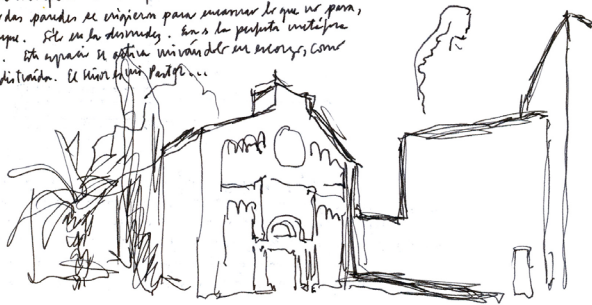 das paredes se erigieron para encarnar lo que no pasa,
que. Sólo en la desnudez. Era la perfecta metáfora
. Este espacio se activa mirándolo en escorzo, como
distraído. El Señor es mi Pastor...